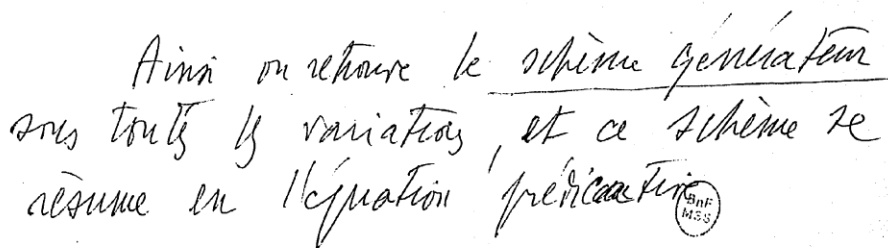 Ainsi on retrouve le schème générateur
sous toutes les variations, et ce schème se
résume en l'équation prédicative
BnF
MSS